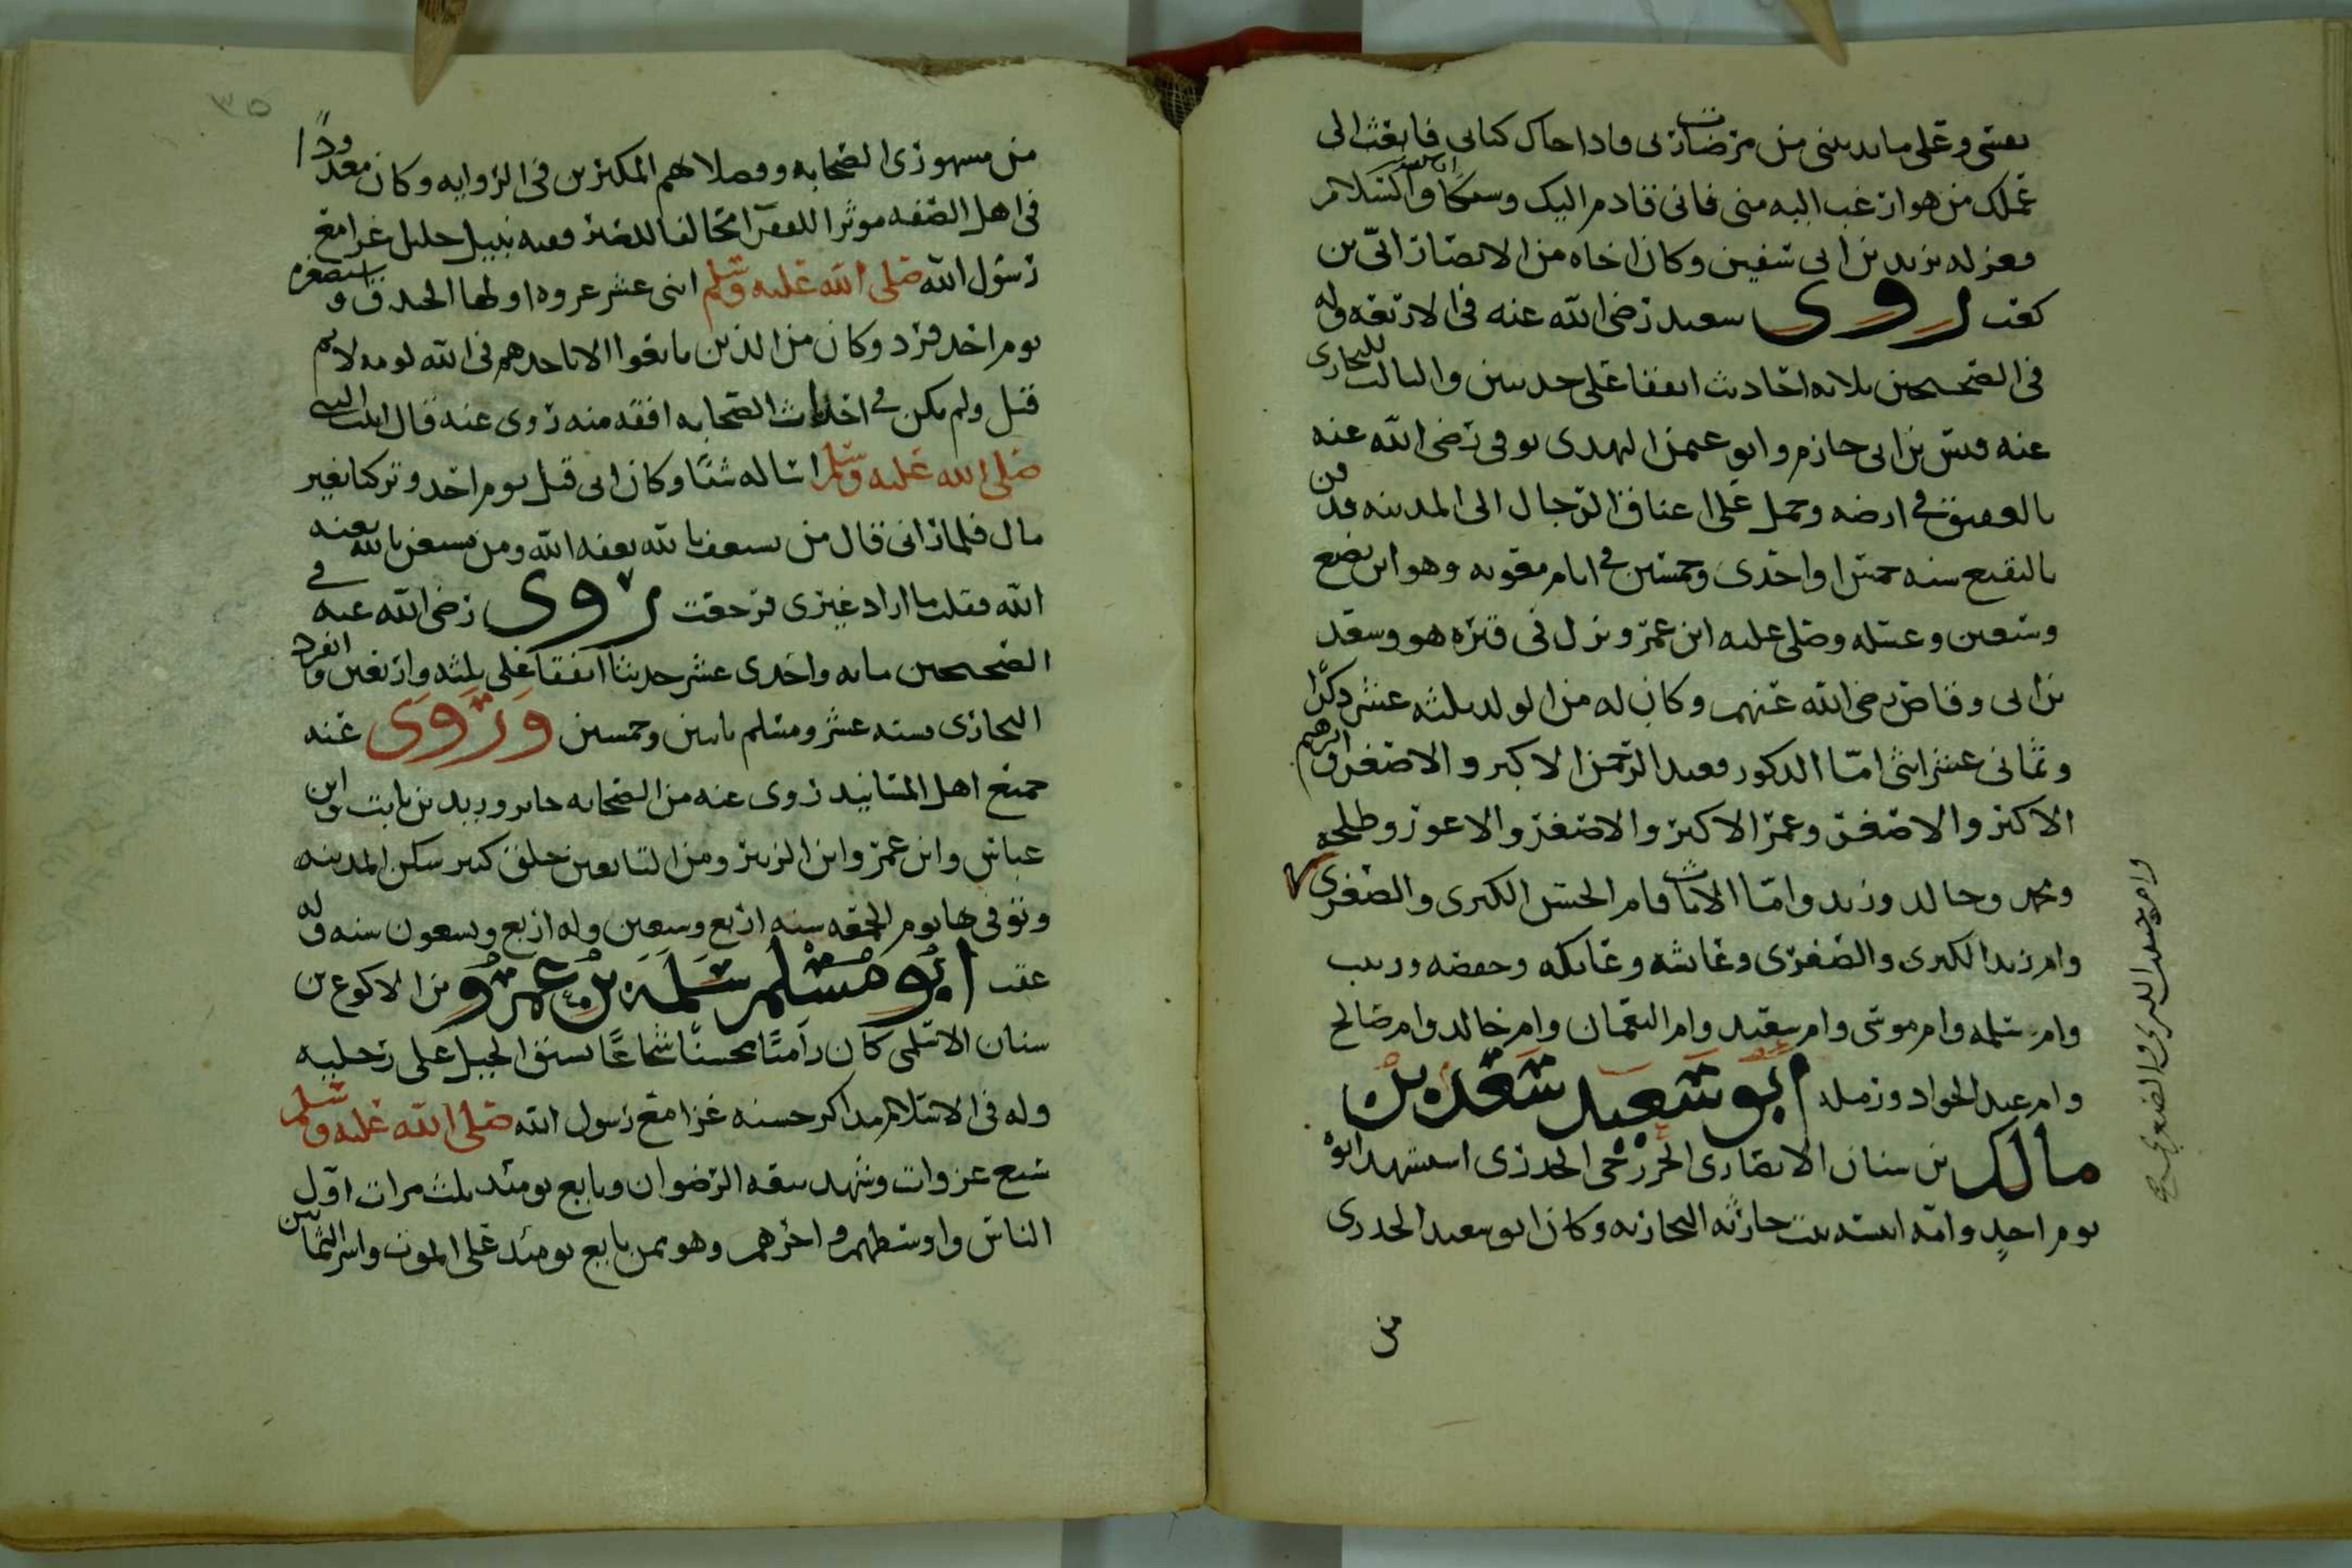 نفسى وعلى ما يدنينى من مرضات ربى فاذا جاك كتابى فابعث الى
عملك من هو ارغب اليه منى فانى قادم اليك وشيكا ان شا الله والسلام
فعزله يزيد بن ابى سفين وكان اخاه من الانصار ابىّ بن
كعب روى سعيد رضى الله عنه فى الاربعه وله
فى الصحيحين ثلاثه احاديث اتفقا على حديثين والثالث للبخارى
عنه قيس بن ابى حازم وابو عثمن النهدى توفى رضى الله عنه
بالعقيق فى ارضه وحمل على اعناق الرجال الى المدينه فدفن
بالبقيع سنه خمس او احدى وخمسين فى ايام معويه وهو ابن بضع
وسبعين وغسله وصلى عليه ابن عمر ونزل فى قبره هو وسعد
بن ابى وقاص رضى الله عنهم وكان له من الولد ثلثه عشر ذكرًا
وثمانى عشر انثى امّا الذكور فعبد الرحمن الاكبر والاصغر وابرهيم
الاكبر والاصغر وعمر الاكبر والاصغر والاعور وطلحه
ومحمد وخالد وزيد وامّا الاناث فام الحسن الكبرى والصغرى
وام زيد الكبرى والصغرى وعائشه وعاتكه وحفصه وزينب
وام سلمه وام موسى وام سعيد وام النعمان وام خالد وام صالح
وام عبد الجواد وزمله ابو سعيد سعد بن
مالك بن سنان الانصارى الخزرجى الخدرى استشهد ابوه
يوم احدٍ وامّه انيسه بنت حارثه النجاريه وكان ابو سعيد الخدرى
من
من مشهورى الصحابه وفضلائهم المكثرين فى الروايه وكان معدودًا
فى اهل الصفه موثرا للفقر مخالفا للصبر فقيه نبيل جليل غزا مع
رسول الله صلى الله عليه وسلم اثنى عشر غزوه اولها الخندق واستصغر
يوم احد فرد وكان من الذين بايعوا الا تاخذهم فى الله لومه لائم
قيل ولم يكن فى احداث الصحابه افقه منه روى عنه قال اتيت النبى
صلى الله عليه وسلم اساله شيًا وكان ابى قتل يوم احد وتركنا بغير
مال فلما رانى قال من يستعف بالله يعفه الله ومن يستغن بالله يغنه
الله فقلت ما اراد غيرى فرجعت روى رضى الله عنه فى
الصحيحين مايه واحدى عشر حديثا اتفقا على ثلثه واربعين وانفرد
البخارى بسته عشر ومسلم باثنين وخمسين وروى عنه
جميع اهل المسانيد روى عنه من الصحابه جابر وزيد بن ثابت وابن
عباس وابن عمر وابن الزبير ومن التابعين خلق كثير سكن المدينه
وتوفى بها يوم الجمعه سنه اربع وسبعين وله اربع وسبعون سنه وله
عقب ابو مسلم سلمه بن عمرو بن الاكوع بن
سنان الاسلمى كان راميًا محسنًا شجاعًا يسبق الخيل على رجليه
وله فى الاسلام مذاكر حسنه غزا مع رسول الله صلى الله عليه وسلم
سبع غزوات وشهد بيعه الرضوان وبايع يومئذ ثلث مرات اول
الناس واوسطهم واخرهم وهو ممن بايع يومئذ على الموت واسر الثمانين
وام سعيد الكبرى والصغرى صح
٣٥